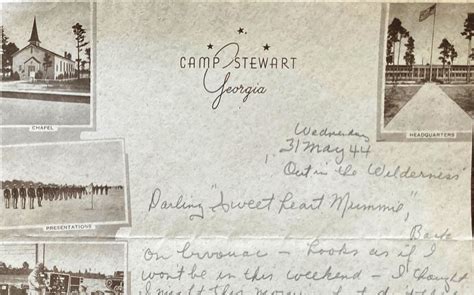 CAMP STEWART
Georgia
CHAPEL
HEADQUARTERS
PRESENTATIONS
Wednesday
31 May 44
"Out in the Wilderness"
Darling "Sweet heart Mummie",
Back
on bivouac - looks as if I
won't be in this weekend - I thought
I might this